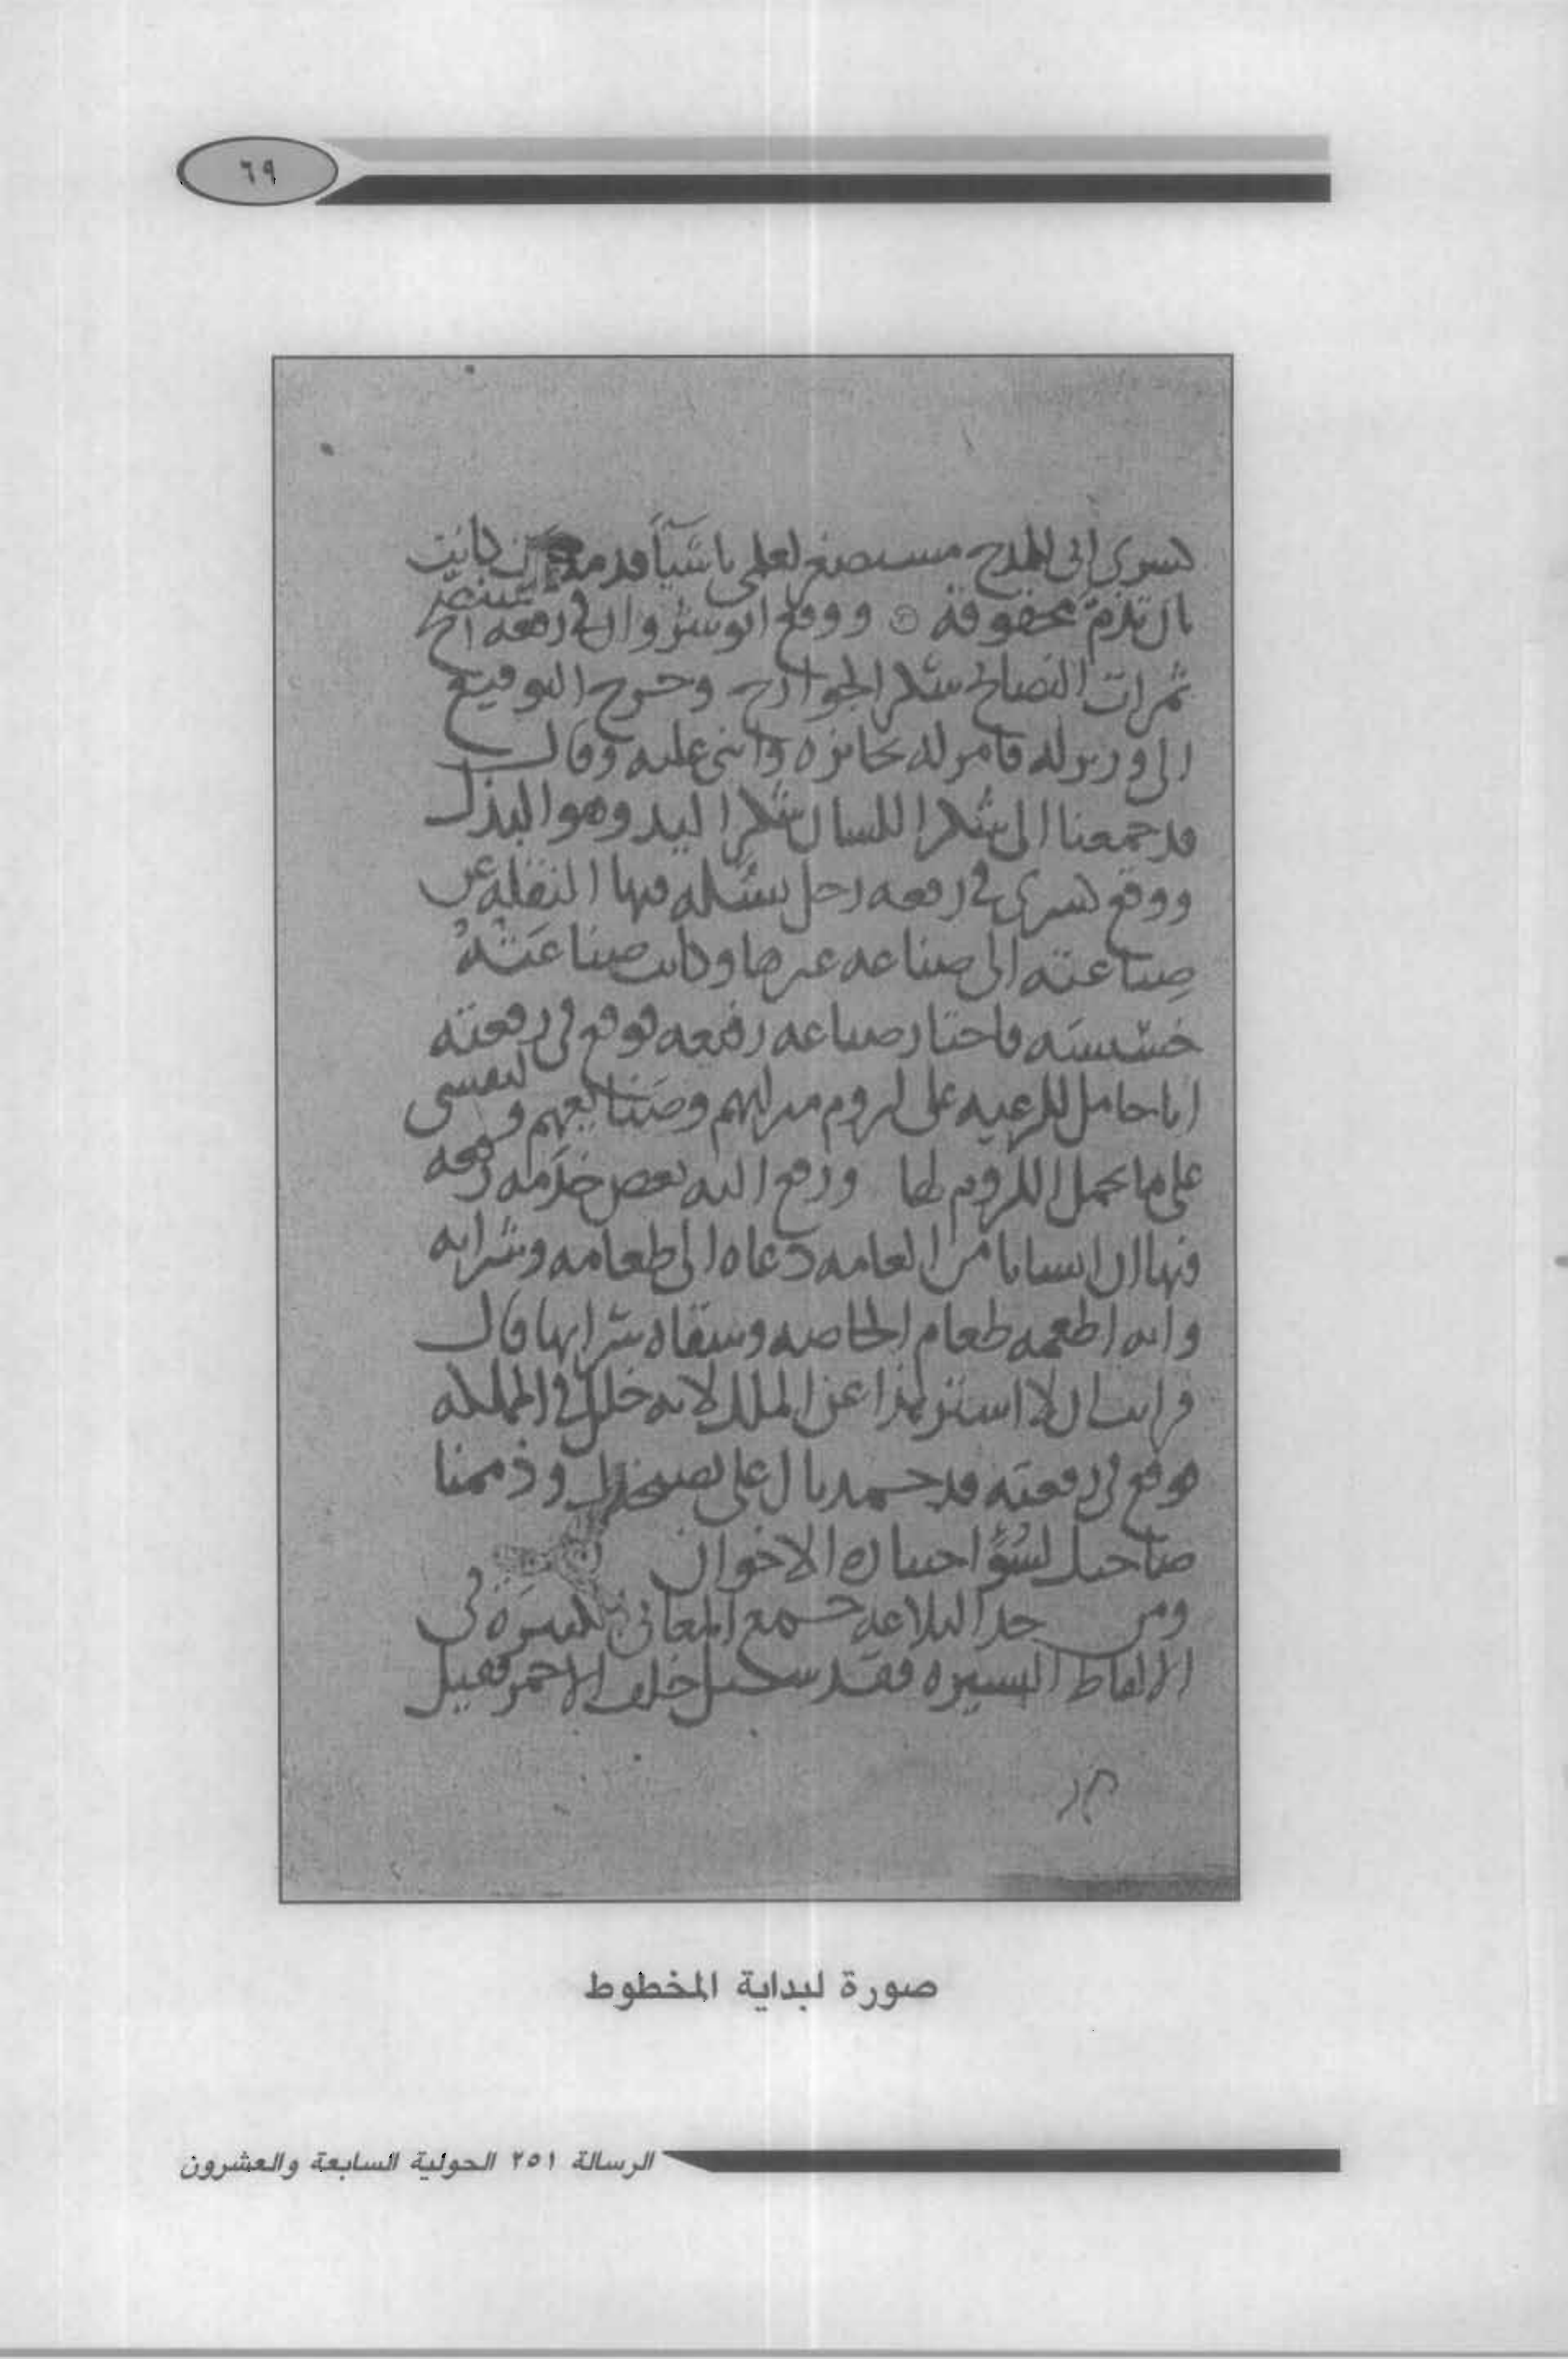 ٦٩
كسرى إني للمدح مستصغر لعلمي باشيا قد مدحت كانت
بان تذم محقوقة ووقع انوشروان في رفعه
ثمرات النصائح شكر الجوارح وخرج التوقيع
الى وزير له فامر له بجائزه واثنى عليه وقال
قد جمعنا الى شكر اللسان شكر اليد وهو البذل
ووقع كسرى في رقعه رجل يسئله فيها النقلة عن
صِناعته الى صناعه غيرها وكانت صناعَتْهُ
خسّيسَه فاختار صناعه رفيعه فوقع في رقعته
انا حامل للرعيه على لزوم مراتبهم وصَنائعهم ونفسى
على ما يحمل اللزوم لها ورفع اليه بعض خدَمه رقعه
فيها ان انسانا من العامه دعاه الى طعامه وشرابه
وانه اطعمه طعام الخاصه وسقاه شرابها قال
فرايت ان لا استر هذا عن الملك لانه خلل في المملكه
فوقع في رقعته قد حمدناك على نصيحتك وذممنا
صاحبك لسُوًء اختياره الاخوان
ومن حد البلاغه جمع المعاني الكثيرَه في
الالفاظ اليسيره فقد سئل خلف الاحمر فقيل
صورة لبداية المخطوط
الرسالة ٢٥١ الحولية السابعة والعشرون